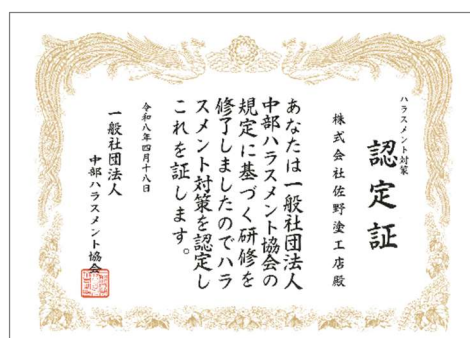 ハラスメント対策
認定証
株式会社佐野塗工店殿
あなたは一般社団法人
中部ハラスメント協会の
規定に基づく研修を
修了しましたのでハラ
スメント対策を認定し
これを証します。
令和八年四月十八日
一般社団法人
中部ハラスメント協会